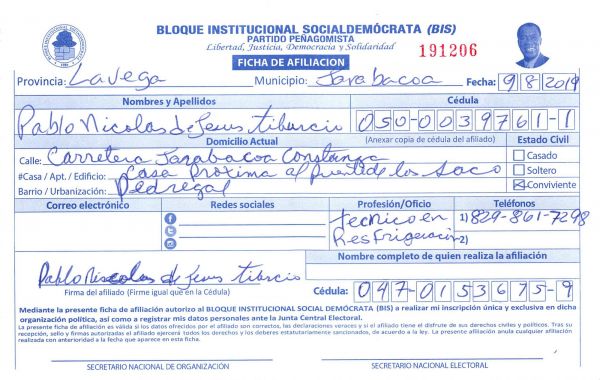 BLOQUE INSTITUCIONAL SOCIALDEMÓCRATA (BIS)
PARTIDO PEÑAGOMISTA
Libertad, Justicia, Democracia y Solidaridad
191206
FICHA DE AFILIACION
Provincia: La Vega Municipio: Jarabacoa Fecha: 9/8/2019
Nombres y Apellidos Cédula
Pablo Nicolas de Jesus tiburcio 050-0039761-1
(Anexar copia de cédula del afiliado)
Domicilio Actual Estado Civil
Calle: Carretera Jarabacoa Constanza Casado
#Casa / Apt. / Edificio: Casa Proxima al puente los Saco Soltero
Barrio / Urbanización: Pedregal Conviviente
Correo electrónico Redes sociales Profesión/Oficio Teléfonos
tecnico en 1) 829-861-7298
Resfrigeracion 2)
Nombre completo de quien realiza la afiliación
Pablo Nicolas de Jesus tiburcio
Firma del afiliado (Firme igual que en la Cédula) Cédula: 047-0153675-9
Mediante la presente ficha de afiliación autorizo al BLOQUE INSTITUCIONAL SOCIAL DEMÓCRATA (BIS) a realizar mi inscripción única y exclusiva en dicha
organización política, así como a registrar mis datos personales ante la Junta Central Electoral.
La presente ficha de afiliación es válida si los datos ofrecidos por el afiliado son correctos, las declaraciones veraces y si el afiliado tiene el disfrute de sus derechos civiles y políticos. Tras su
recepción, sello y firmas autorizadas el afiliado ejercerá todos los derechos y los deberes estatutariamente sancionados, de acuerdo a la ley. La presente afiliación anula cualquier afiliación
realizada con anterioridad a la fecha que aparece en esta ficha.
SECRETARIO NACIONAL DE ORGANIZACIÓN SECRETARIO NACIONAL ELECTORAL